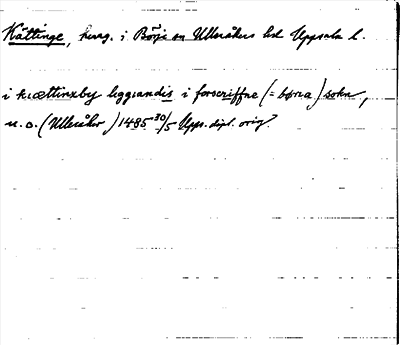 Kättinge, hmg. i Börje sn Ulleråkers hd Uppsala l.
i kiættinxby liggiandis i forscriffne (= børia) sokn,
u. o. (Ulleråker) 1485 30/5 Upps. dipl. orig.